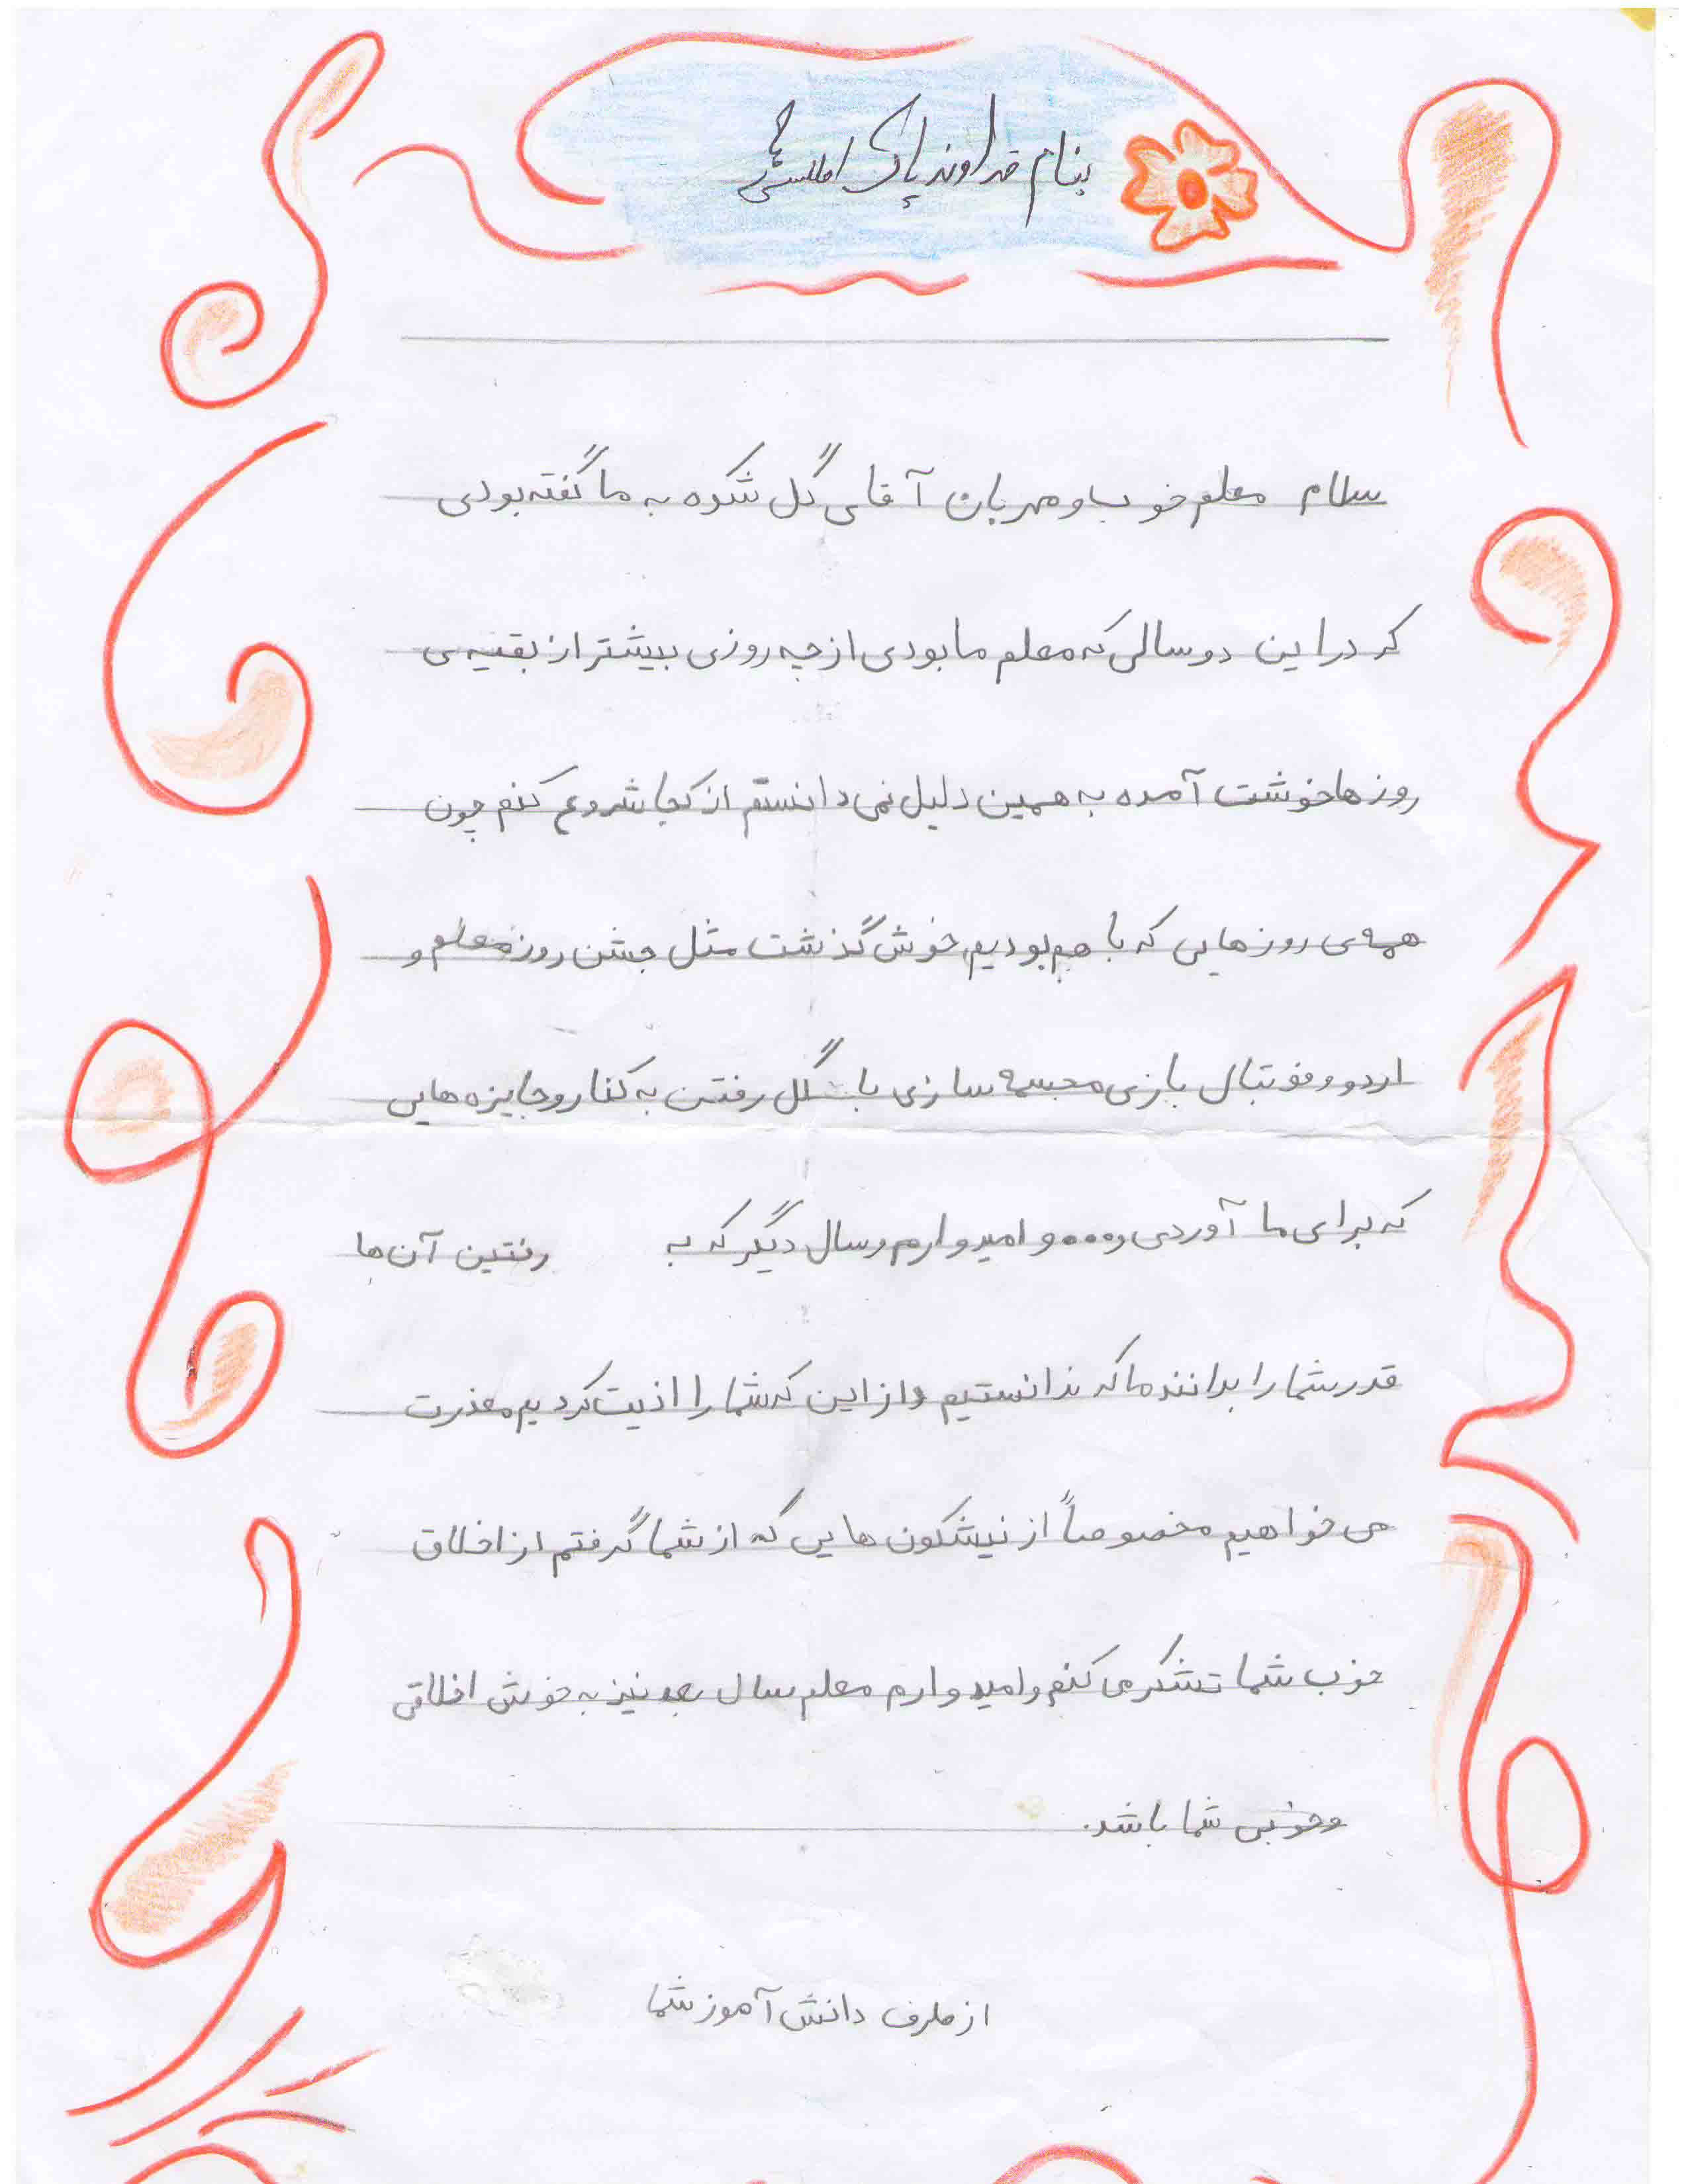 بنام خداوند پاک اطلسی ها
سلام معلم خوب و مهربان آقای گل شکوه به ما گفته بودی
که در این دو سالی که معلم ما بودی از چه روزی بیشتر از بقیه ی
روزها خوشت آمده به همین دلیل نمی دانستم از کجا شروع کنم چون
همه ی روزهایی که با هم بودیم خوش گذشت مثل جشن روز معلم و
اردو و فوتبال بازی مجسمه سازی با گل رفتن به کنار و جایزه هایی
که برای ما آوردی و... و امیدوارم و سال دیگر که به رفتین آن ها
قدر شما را بدانند ما که ندانستیم و از این که شما را اذیت کردیم معذرت
می خواهیم مخصوصاً از نیشکون هایی که از شما گرفتم از اخلاق
خوب شما تشکر می کنم و امیدوارم معلم سال بعد نیز به خوش اخلاقی
و خوبی شما باشد.
از طرف دانش آموز شما